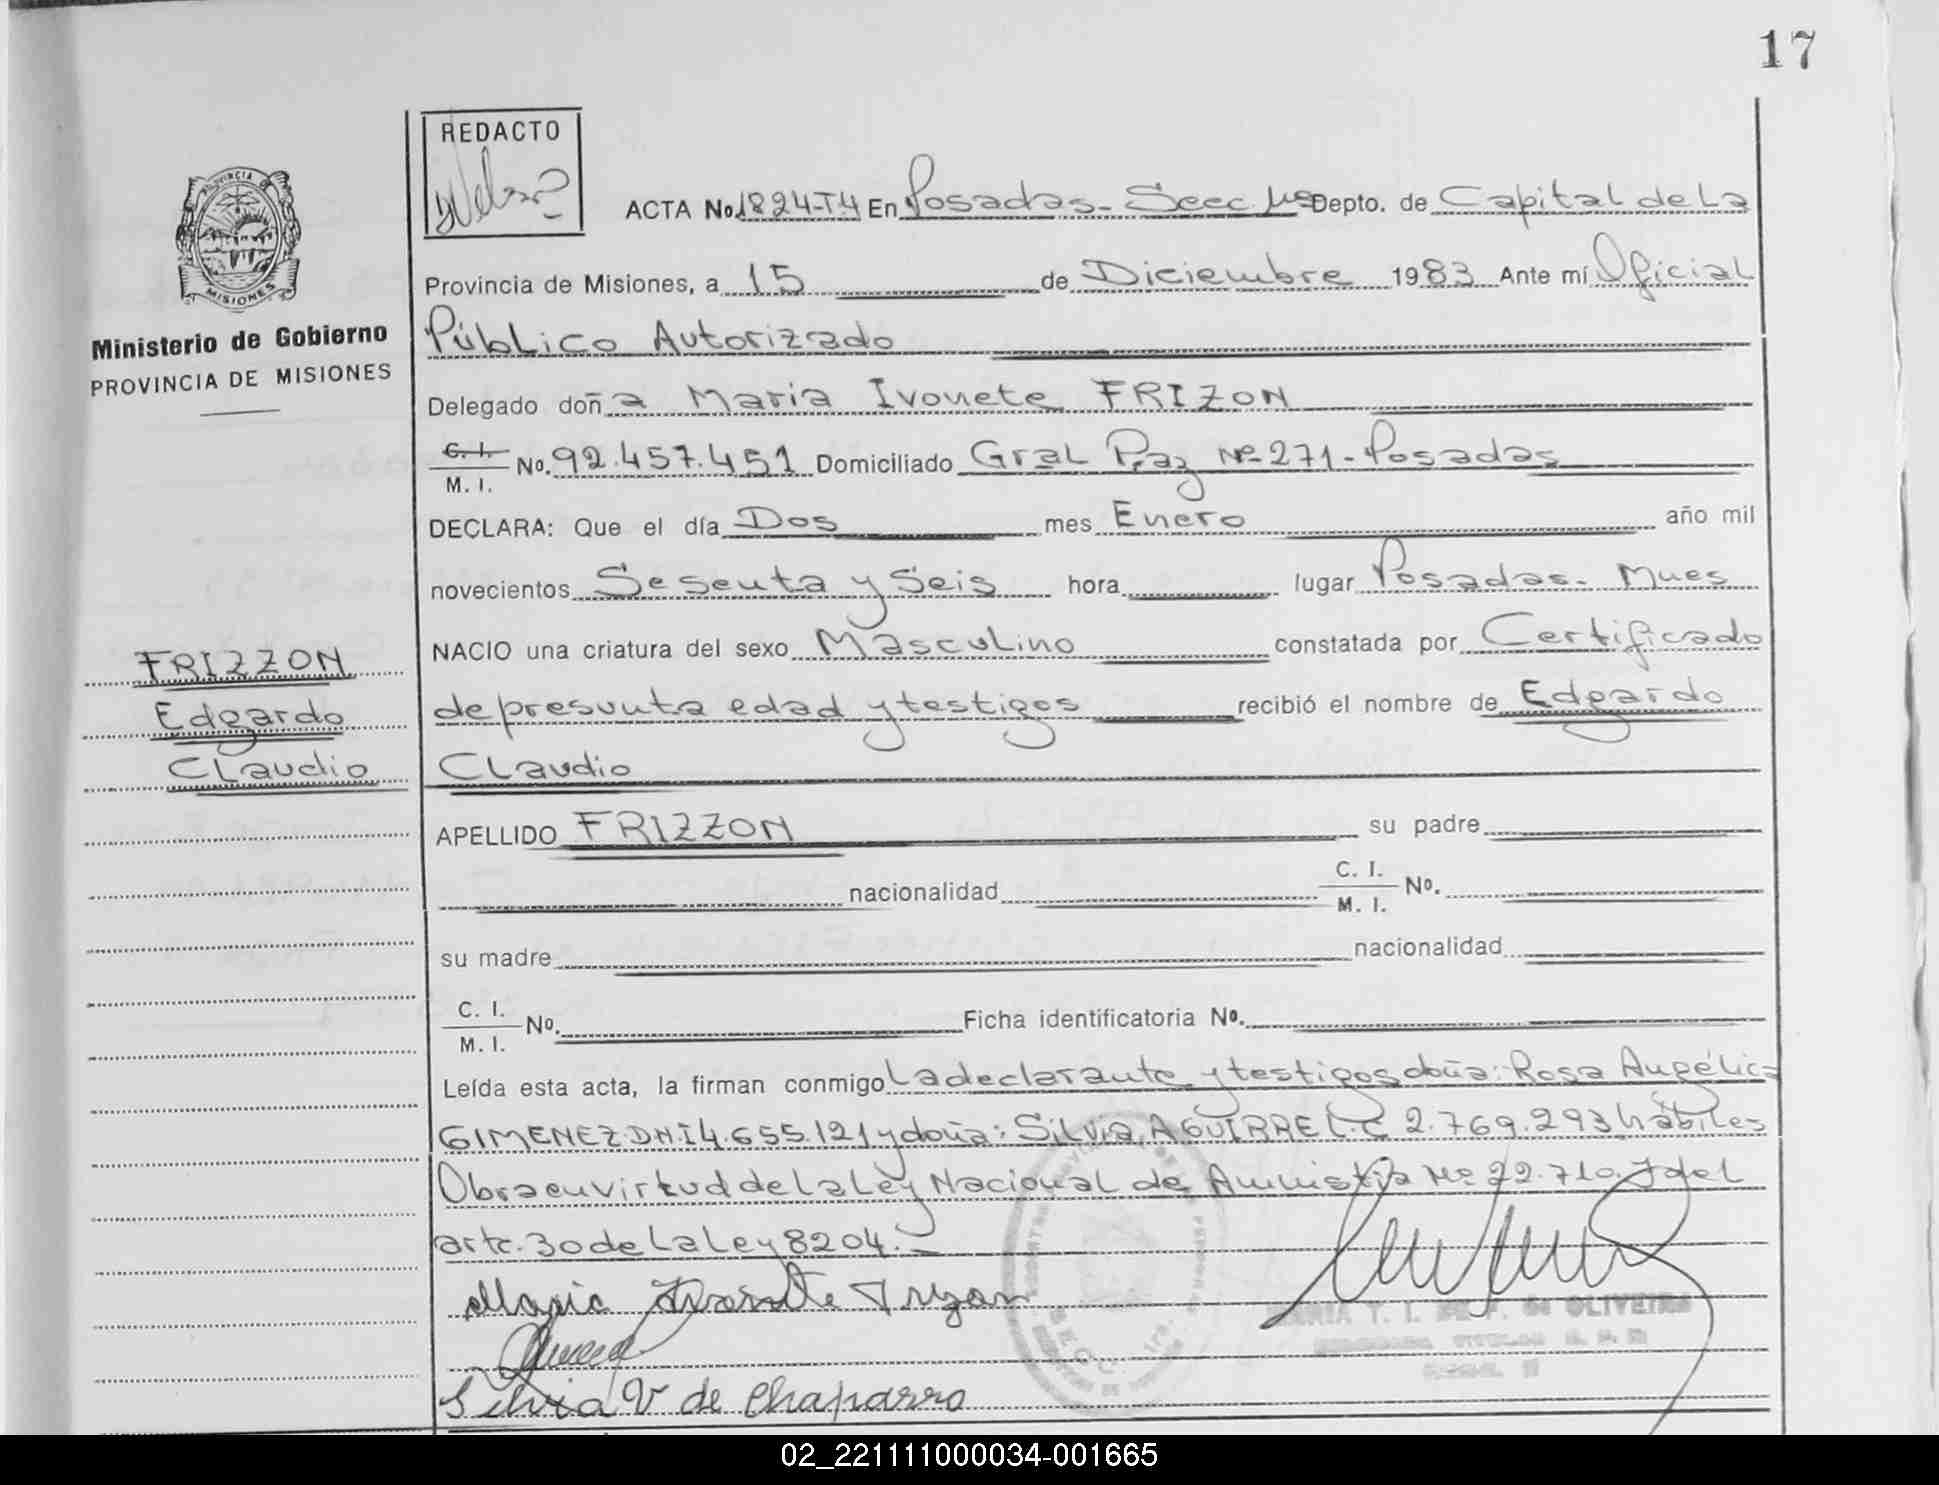 17
REDACTO
PROVINCIA
MISIONES
Ministerio de Gobierno
PROVINCIA DE MISIONES
ACTA No. 1824-T4 En Posadas - Secc 1ª Depto. de Capital de La
Provincia de Misiones, a 15 de Diciembre 1983 Ante mí Oficial
Público Autorizado
Delegado doña Maria Ivonete FRIZON
C. I.
M. I. No. 92.457.451 Domiciliado Gral Paz Nº 271 - Posadas
DECLARA: Que el día Dos mes Enero año mil
novecientos Sesenta y Seis hora lugar Posadas - Mnes
NACIO una criatura del sexo Masculino constatada por Certificado
de presunta edad y testigos recibió el nombre de Edgardo
Claudio
FRIZZON
Edgardo
Claudio
APELLIDO FRIZZON su padre
nacionalidad C. I.
M. I. No.
su madre nacionalidad
C. I.
M. I. No. Ficha identificatoria No.
Leída esta acta, la firman conmigo La declarante y testigos doña: Rosa Angélica
GIMENEZ DNI 4.655.121 y doña: Silvia AGUIRRE L.C 2.769.293 hábiles
Obra en virtud de la Ley Nacional de Amnistia Nº 22.710 y del
artc. 30 de la Ley 8204.-
Maria Ivonete Frizon
Silvia V de Chaparro
OLIVEIRA
02_221111000034-001665